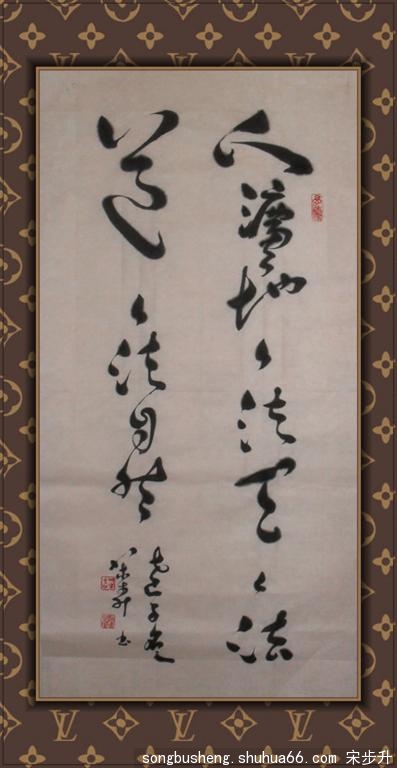 人灋地〻法天〻法
道〻法自然
老子
宋步升书
songbusheng.shuhua66.com 宋步升